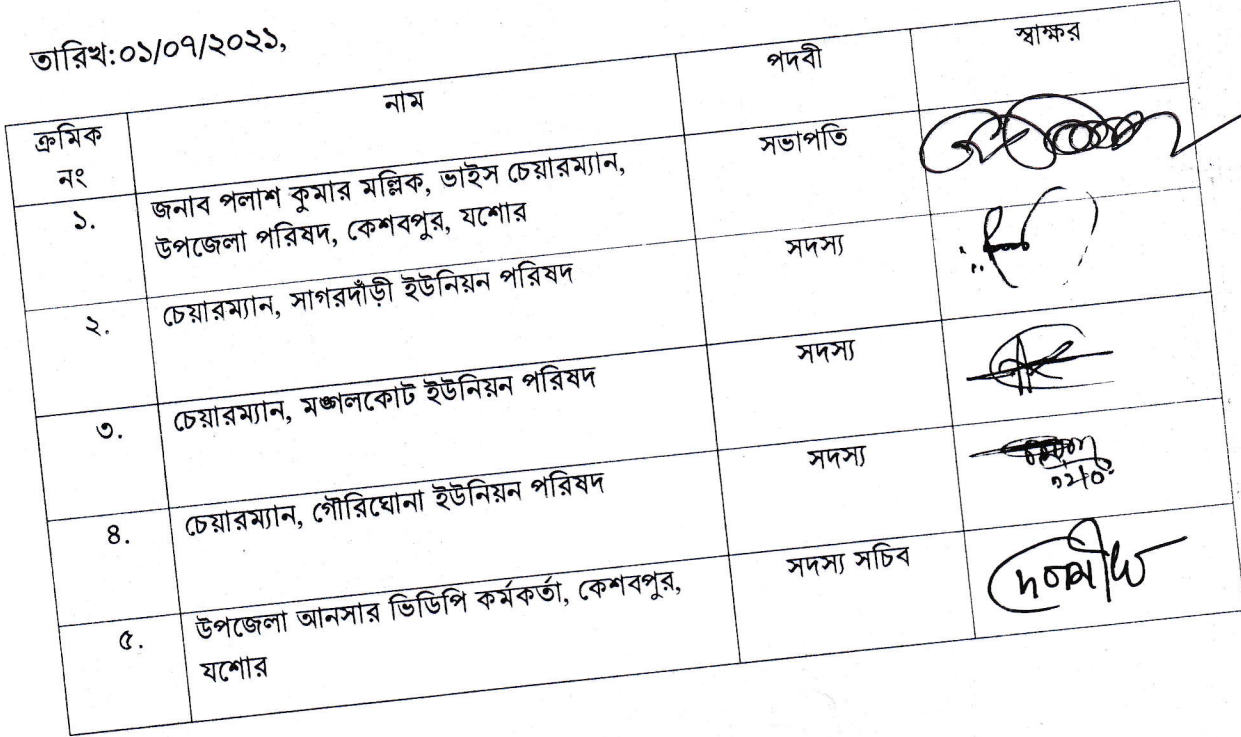 তারিখ:০১/০৭/২০২১,
ক্রমিক নং নাম পদবী স্বাক্ষর
১. জনাব পলাশ কুমার মল্লিক, ভাইস চেয়ারম্যান, সভাপতি
উপজেলা পরিষদ, কেশবপুর, যশোর
২. চেয়ারম্যান, সাগরদাঁড়ী ইউনিয়ন পরিষদ সদস্য
৩. চেয়ারম্যান, মঙ্গলকোট ইউনিয়ন পরিষদ সদস্য
৪. চেয়ারম্যান, গৌরিঘোনা ইউনিয়ন পরিষদ সদস্য
৫. উপজেলা আনসার ভিডিপি কর্মকর্তা, কেশবপুর, সদস্য সচিব
যশোর